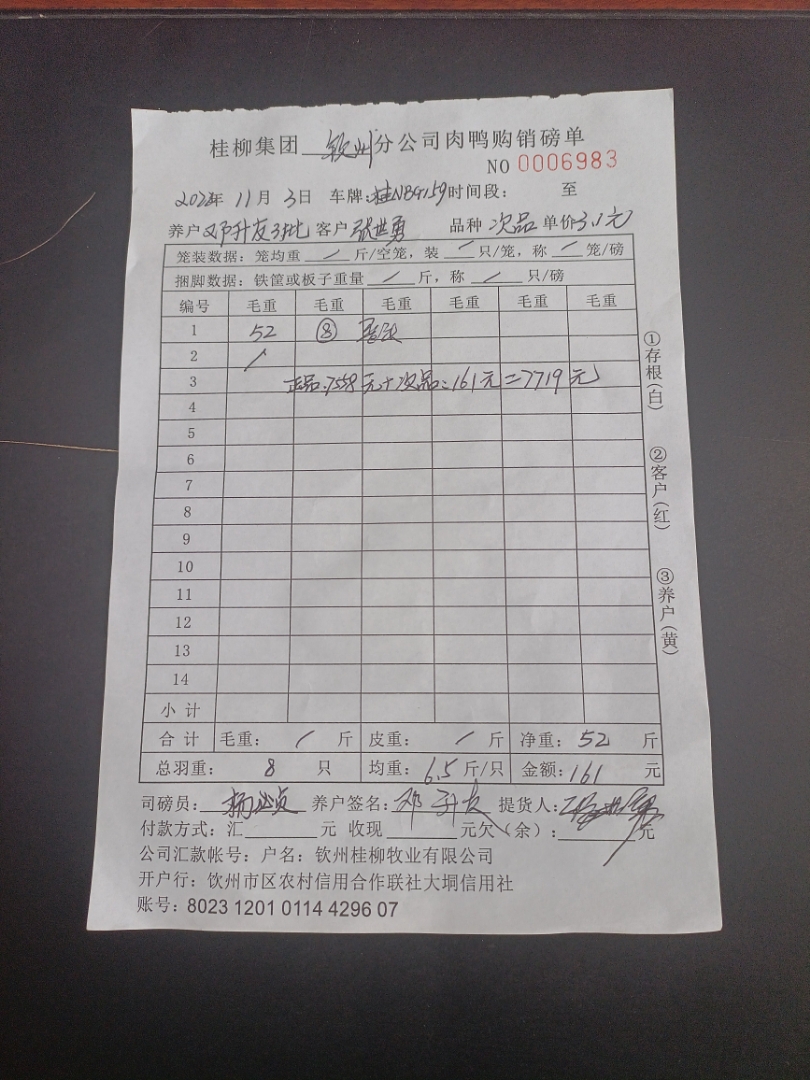 桂柳集团 钦州 分公司肉鸭购销磅单
NO 0006983
2022年 11月 3日 车牌:桂NB9159时间段: 至
养户 邓升友3批 客户 张世勇 品种 次品 单价3.1元
笼装数据: 笼均重 / 斤/空笼, 装 / 只/笼, 称 / 笼/磅
捆脚数据: 铁筐或板子重量 / 斤, 称 / 只/磅
编号 毛重 毛重 毛重 毛重 毛重 毛重
1 52 ⑧
2 /
3 正品:7558元+次品:161元=7719元
4
5
6
7
8
9
10
11
12
13
14
小计
合计 毛重: / 斤 皮重: / 斤 净重: 52 斤
总羽重: 8 只 均重: 6.5 斤/只 金额: 161 元
司磅员: 养户签名: 邓升友 提货人: 张世勇
付款方式: 汇 元 收现 元欠(余): 元
公司汇款帐号: 户名: 钦州桂柳牧业有限公司
开户行: 钦州市区农村信用合作联社大垌信用社
账号: 8023 1201 0114 4296 07
①存根(白)
②客户(红)
③养户(黄)